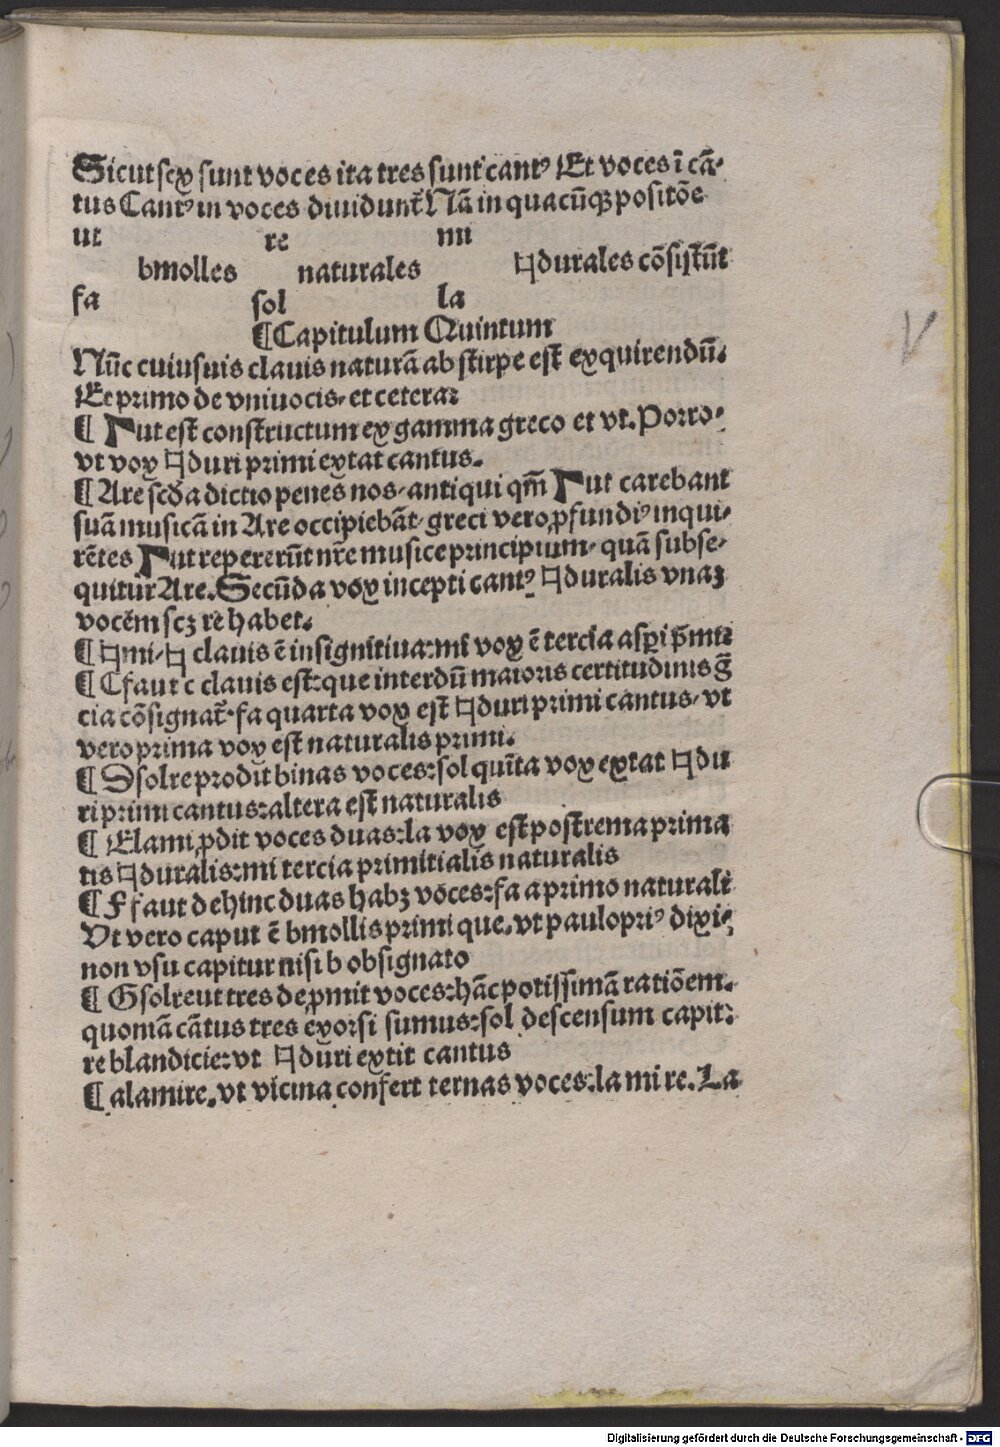 Sicut sex sunt voces ita tres sunt cantꝰ Et voces ī cā⸗
tus Cantꝰ in voces diuidunt᷑ Nā in quacūqꝫ positōe
ut re mi
bmolles naturales ♮durales cōsistūt
fa sol la
¶Capitulum Quintum
Nūc cuiusuis clauis naturā ab stirpe est exquirendū.
Et primo de vniuocis, et cetera:
¶ Γut est constructum ex gamma greco et vt. Porro
vt vox ♮duri primi extat cantus.
¶ Are scḋa dictio penes nos, antiqui qm̄ Γut carebant
suā musicā in Are occipiebāt, greci vero ꝓfundiꝰ inqui⸗
rētes Γut repererūt nr̄e musice principium, quā subse⸗
quitur Are. Secūda vox incepti cantꝰ ♮duralis vnaꝫ
vocem scꝫ re habet.
¶ ♮mi, ♮ clauis ē insignitiua: mi vox ē tercia asꝑi p̄mi:
¶ Cfaut c clauis est: que interdū maioris certitudinis g̅
cia cōsignat᷑. fa quarta vox est ♮duri primi cantus, vt
vero prima vox est naturalis primi.
¶ Dsolre prodūt binas voces: sol quīta vox extat ♮du
ri primi cantus: altera est naturalis
¶ Elami ꝓdit voces duas: la vox est postrema prima
tis ♮duralis: mi tercia primitialis naturalis
¶ Ffaut dehinc duas habꝫ voces: fa a primo naturali
Vt vero caput ē bmollis primi que, vt paulo priꝰ dixi:
non vsu capitur nisi b obsignato
¶ Gsolreut tres de ꝓmit voces: hāc potissimā ratiōem.
quoniā cātus tres exorsi sumus: sol descensum capit:
re blandicie: vt ♮duri extit cantus
¶ alamire, vt vicina confert ternas voces: la mi re. La
V
Digitalisierung gefördert durch die Deutsche Forschungsgemeinschaft - DFG